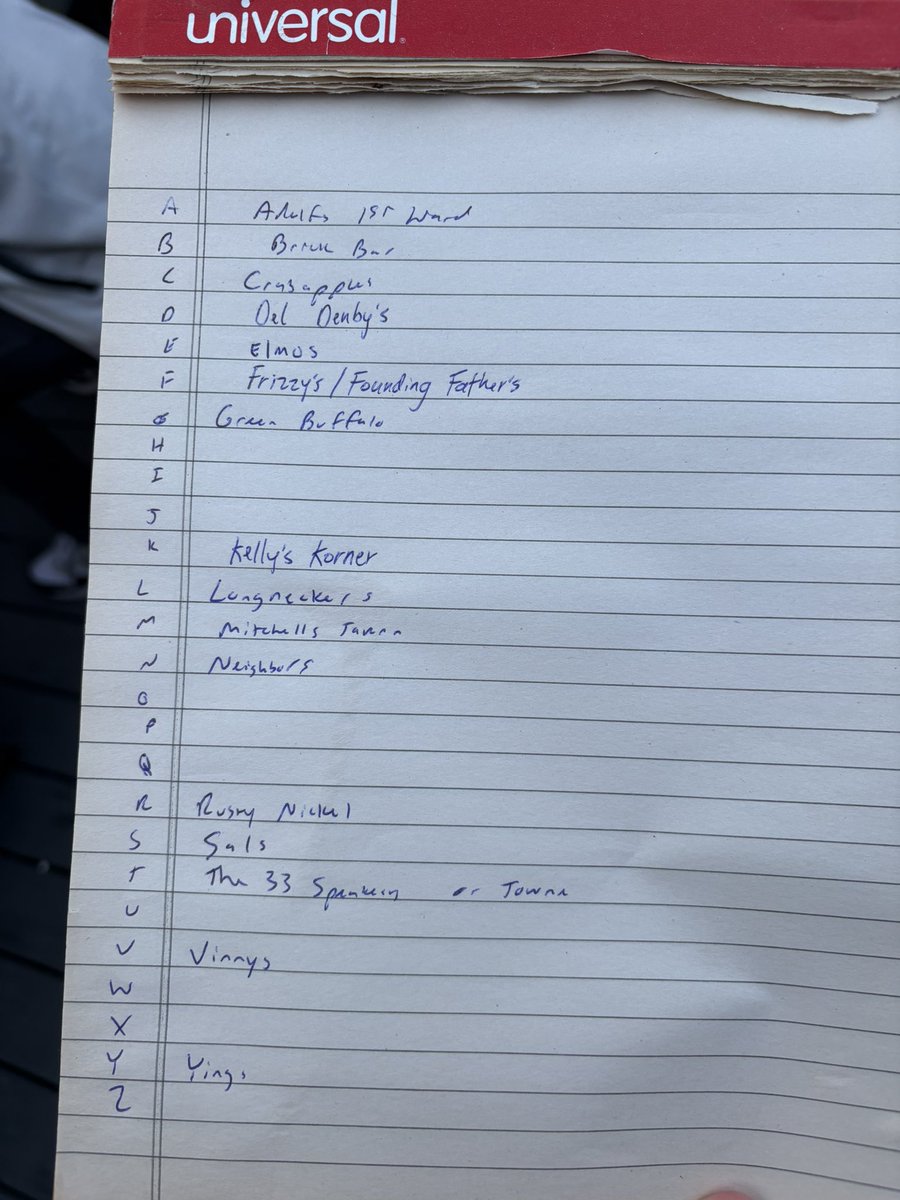 universal
A Adolfs 1st Ward
B Brick Bar
C Crabapples
D Del Denby's
E Elmos
F Frizzy's / Founding Father's
G Green Buffalo
H
I
J
K Kelly's Korner
L Longneckers
M Mitchells Tavern
N Neighbors
O
P
Q
R Rusty Nickel
S Sals
T The 33 Speakeasy or Towne
U
V Vinnys
W
X
Y Yings
Z